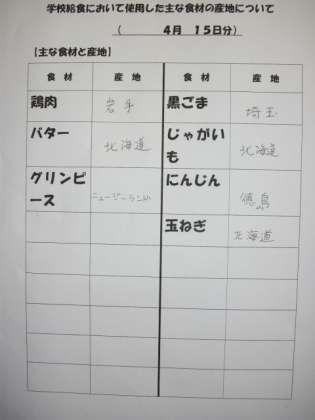 学校給食において使用した主な食材の産地について
（　4月　15日分）
【主な食材と産地】
食材　産地　食材　産地
鶏肉　岩手　黒ごま　埼玉
バター　北海道　じゃがいも　北海道
グリンピース　ニュージーランド　にんじん　徳島
玉ねぎ　北海道